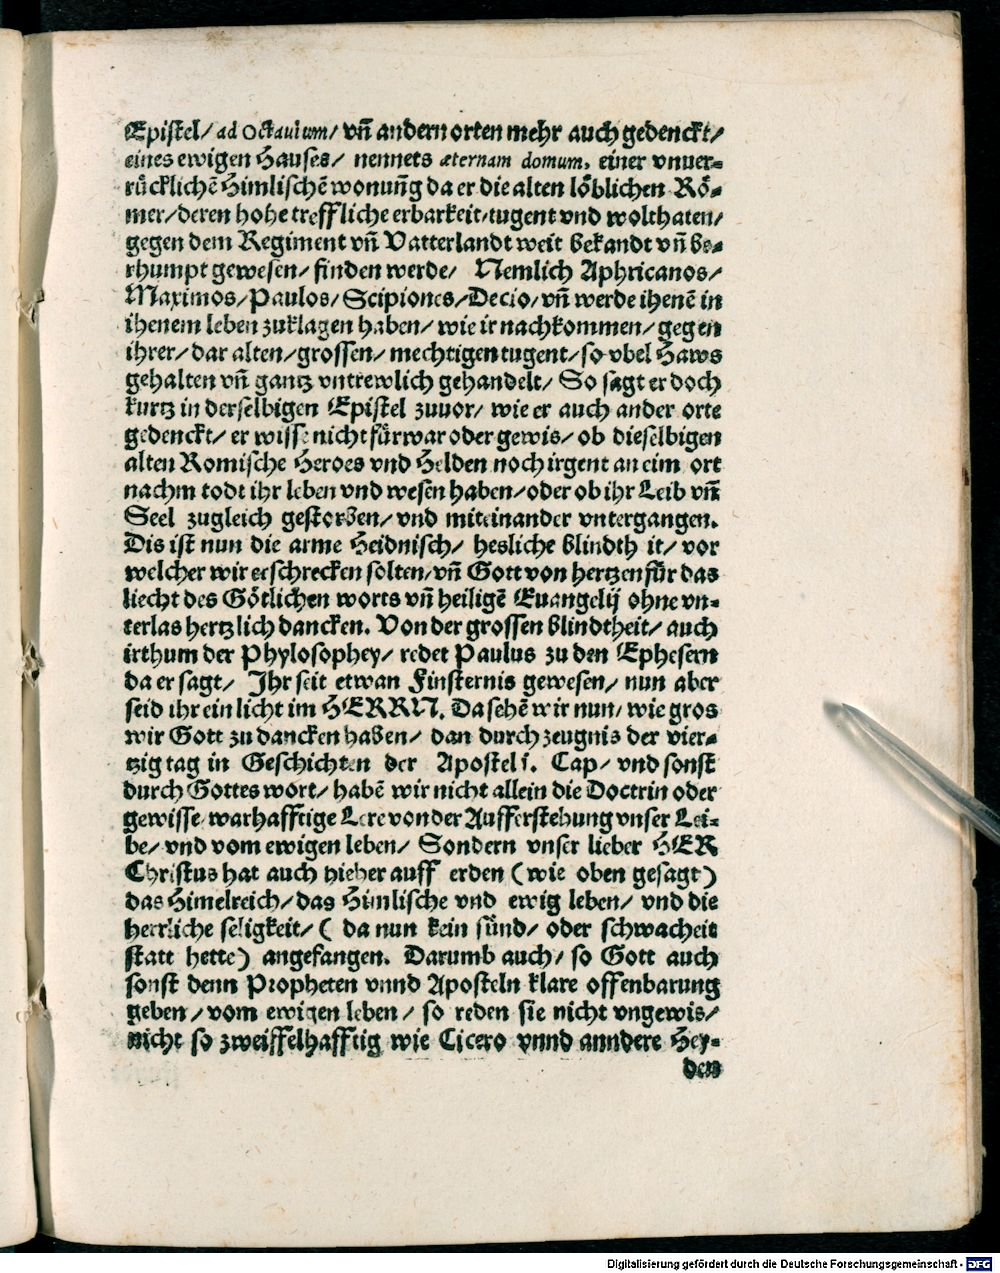 Epistel/ ad Octauium/ vñ andern orten mehr auch gedenckt/
eines ewigen Hauses/ nennets æternam domum, einer vnuer-
rücklichẽ Himlischẽ wonuñg da er die alten löblichen Rö-
mer/ deren hohe treffliche erbarkeit/ tugent vnd wolthaten/
gegen dem Regiment vñ Vatterlandt weit bekandt vñ be-
rhumpt gewesen/ finden werde/ Nemlich Aphricanos/
Maximos/ Paulos/ Scipiones/ Decio/ vñ werde ihenẽ in
ihenem leben zuklagen haben/ wie ir nachkommen/ gegen
ihrer/ dar alten/ grossen/ mechtigen tugent/ so vbel Haws
gehalten vñ gantz vntrewlich gehandelt/ So sagt er doch
kurtz in derselbigen Epistel zuuor/ wie er auch ander orte
gedenckt/ er wisse nicht fürwar oder gewis/ ob dieselbigen
alten Romische Heroes vnd Helden noch irgent an eim ort
nachm todt ihr leben vnd wesen haben/ oder ob ihr Leib vñ
Seel zugleich gestorben/ vnd miteinander vntergangen.
Dis ist nun die arme Heidnisch/ hesliche blindth it/ vor
welcher wir erschrecken solten/ vñ Gott von hertzen für das
liecht des Götlichen worts vñ heiligẽ Euangelij ohne vn-
terlas hertzlich dancken. Von der grossen blindtheit/ auch
irthum der Phylosophey/ redet Paulus zu den Ephesern
da er sagt/ Ihr seit etwan Finsternis gewesen/ nun aber
seid ihr ein licht im HERRN. Da sehẽ wir nun/ wie gros
wir Gott zu dancken haben/ dan durch zeugnis der vier-
tzig tag in Geschichten der Apostel i. Cap/ vnd sonst
durch Gottes wort/ habẽ wir nicht allein die Doctrin oder
gewisse/ warhafftige Lere von der Aufferstehung vnser Lei-
be/ vnd vom ewigen leben/ Sondern vnser lieber HER
Christus hat auch hieher auff erden (wie oben gesagt)
das Himelreich/ das Himlische vnd ewig leben/ vnd die
herrliche seligkeit/ ( da nun kein sünd/ oder schwacheit
statt hette) angefangen. Darumb auch/ so Gott auch
sonst denn Propheten vnnd Aposteln klare offenbarung
geben/ vom ewigen leben/ so reden sie nicht vngewis/
nicht so zweiffelhafftig wie Cicero vnnd anndere Hey-
den
Digitalisierung gefördert durch die Deutsche Forschungsgemeinschaft - DFG